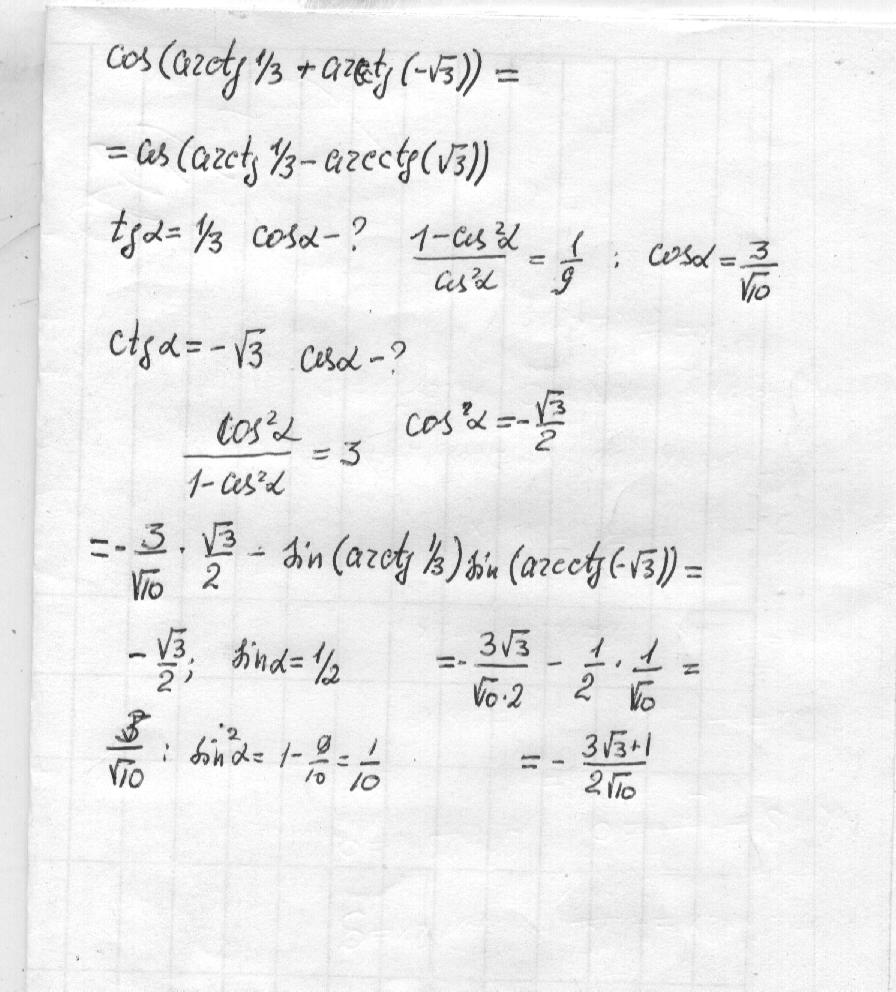 cos(arctg 1/3 + arcctg(-√3)) =
= cos(arctg 1/3 - arcctg(√3))
tgα = 1/3 cosα - ? (1-cos²α)/cos²α = 1/9 ; cosα = 3/√10
ctgα = -√3 cosα - ?
cos²α/(1-cos²α) = 3 cos²α = -√3/2
= - 3/√10 · √3/2 - sin(arctg 1/3) sin(arcctg(-√3)) =
-√3/2; sinα = 1/2 = - 3√3/(√10·2) - 1/2 · 1/√10 =
3/√10 : sin²α = 1 - 9/10 = 1/10 = - (3√3+1)/(2√10)